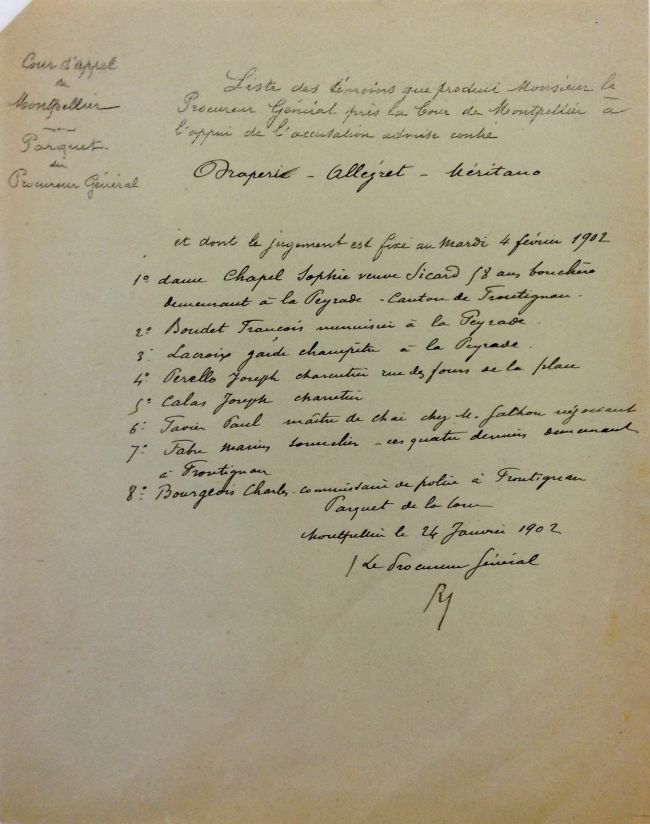 Cour d'appel
de
Montpellier
Parquet
du
Procureur Général
Liste des témoins que produit Monsieur le
Procureur Général près la Cour de Montpellier à
l'appui de l'accusation admise contre
Draperi - Allégret - Méritano
et dont le jugement est fixé au Mardi 4 février 1902
1° dame Chapel Sophie veuve Sicard 58 ans bouchère
demeurant à la Peyrade - Canton de Frontignan.
2° Boudet François menuisier à la Peyrade.
3° Lacroix garde champêtre à la Peyrade.
4° Perello Joseph charcutier rue des fours de la place
5° Calas Joseph charretier
6° Tavier Paul maître de chai chez M. négociant
7° Fabre Marius tonnelier - ces quatre derniers demeurant
à Frontignan
8° Bourgeois Charles - commissaire de police à Frontignan
Parquet de la Cour
Montpellier le 24 Janvier 1902
Le Procureur Général